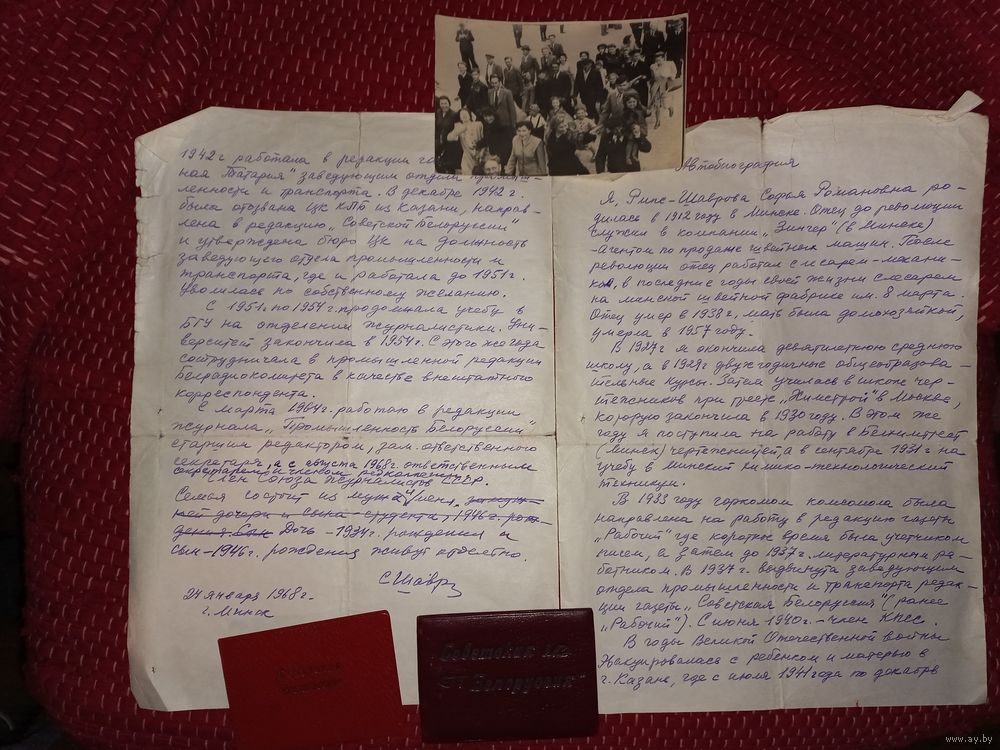 Автобиография
Я, Рипс-Шаврова Софья Романовна ро-
дилась в 1912 году в Минске. Отец до революции
служил в компании "Зингер" (в Минске)
-агентом по продаже швейных машин. После
революции отец работал слесарем-механи-
ком, в последние годы своей жизни слесарем
на минской швейной фабрике им. 8 марта.
Отец умер в 1938 г., мать была домохозяйкой,
умерла в 1957 году.
В 1927 г я окончила девятилетнюю среднюю
школу, а в 1929 г двухгодичные общеобразова-
тельные курсы. Затем училась в школе чер-
тежников при тресте "Химстрой" в Москве,
которую закончила в 1930 году. В этом же
году я поступила на работу в
(Минск) чертежницей, а в сентябре 1931 г на
учебу в Минский химико-технологический
техникум.
В 1933 году горкомом комсомола была
направлена на работу в редакцию газеты
"Рабочий" где короткое время была учетчиком
писем, а затем до 1937 г. литературным ра-
ботником. В 1937 г. выдвинута заведующим
отдела промышленности и транспорта редак-
ции газеты "Советская Белоруссия" (ранее
"Рабочий"). С июня 1940 г. - член КПСС.
В годы Великой Отечественной войны
эвакуировалась с ребенком и матерью в
г. Казань, где с июля 1941 года по декабрь
1942 г работала в редакции
ная Татария" заведующим отдела
ленности и транспорта. В декабре 1942 г.
была отозвана ЦК КПб из Казани, направ-
лена в редакцию "Советской Белоруссии"
и утверждена бюро ЦК на должность
заведующего отдела промышленности и
транспорта, где и работала до 1951 г.
Уволилась по собственному желанию.
С 1951 по 1954 г. продолжала учебу в
БГУ на отделении журналистики. Уни-
верситет закончила в 1954 г. С этого же года
сотрудничала в промышленной редакции
Белрадиокомитета в качестве внештатного
корреспондента.
С марта 1964 г. работаю в редакции
журнала "Промышленность Белоруссии"
старшим редактором, зам. ответственного
секретаря, а с августа 1968 г. ответственным
секретарем и членом редколлегии
Член Союза журналистов СССР.
Семья состоит из
дочери и сына - студента, 1946 г. рож-
дения. Сын Дочь - 1934 г. рождения и
сын - 1946 г. рождения живут отдельно.
С Шавр
24 января 1968 г.
г. Минск
Советская
Белоруссия"